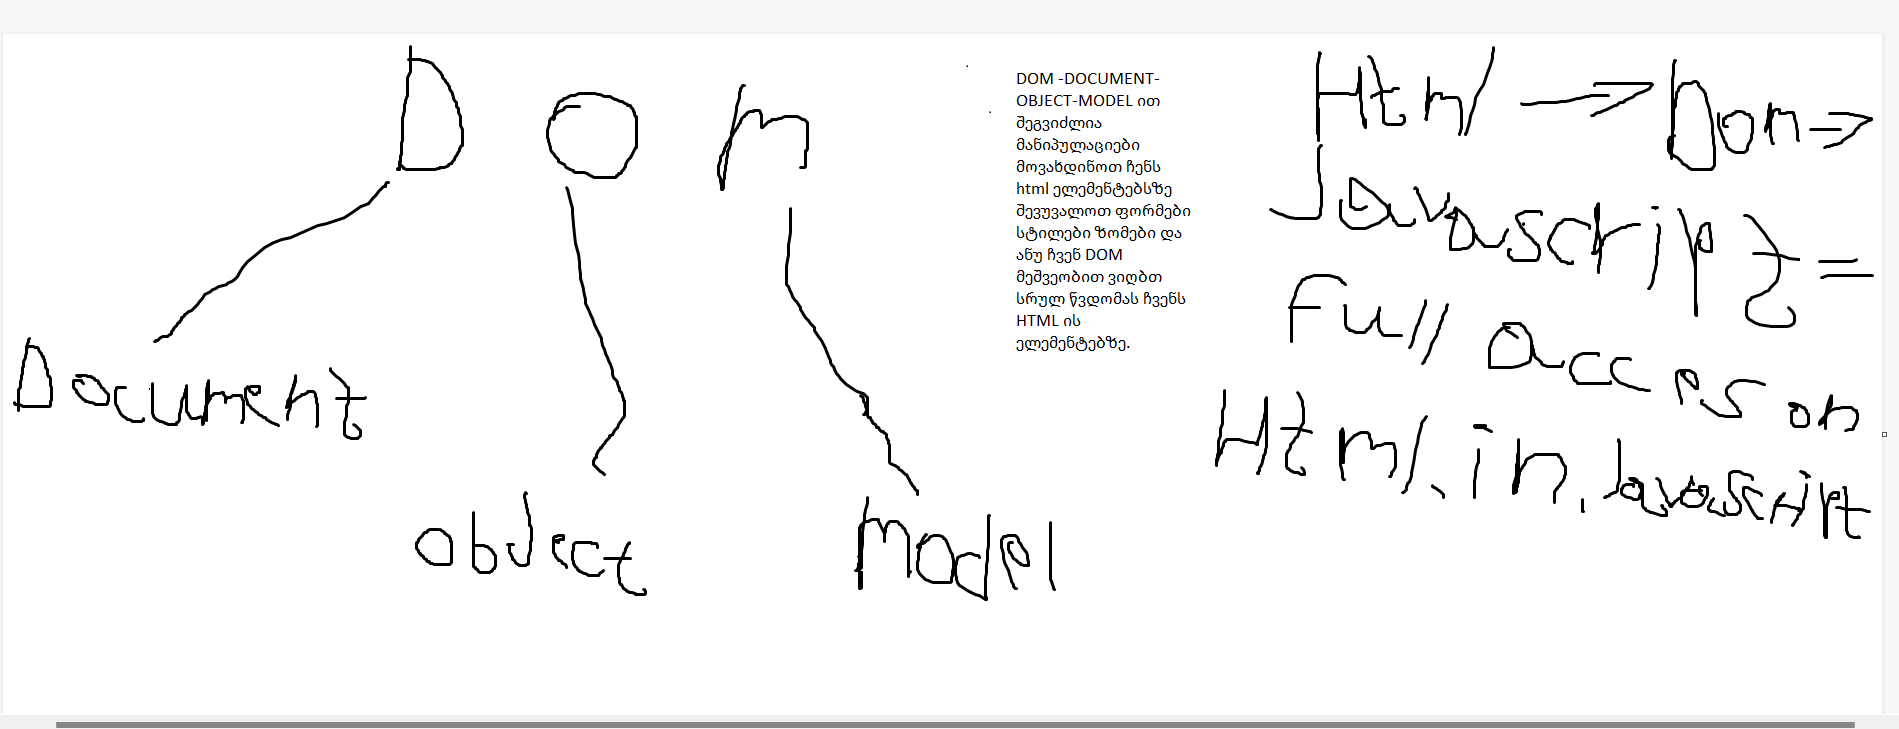 DOM
Document
object
Model
DOM -DOCUMENT-
OBJECT-MODEL ით
შეგვიძლია
მანიპულაციები
მოვახდინოთ ჩენს
html ელემენტებსზე
შევუვალოთ ფორმები
სტილები ზომები და
ანუ ჩვენ DOM
მეშვეობით ვიღბთ
სრულ წვდომას ჩვენს
HTML ის
ელემენტებზე.
Html → Dom →
Javascript =
full acces on
Html.in.Javascript